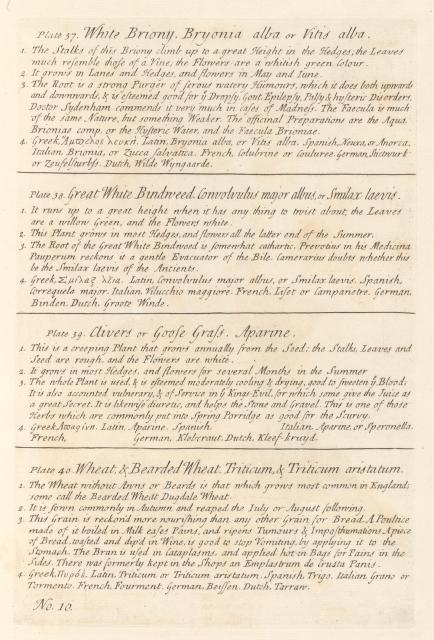 Plate 37. White Briony. Bryonia alba or Vitis alba.
1. The Stalks of this Briony climb up to a great Height in the Hedges; the Leaves
much resemble those of a Vine; the Flowers are a whitish green Colour.
2. It grows in Lanes and Hedges, and flowers in May and Iune.
3. The Root is a strong Purger of serous watery Humours, which it does both upwards
and downwards, & is esteemed good for ẏ Dropsy, Gout, Epilepsy, Palsy & hysteric Disorders.
Doctor Sydenham commends it very much in cases of Madness. The Faecula is much
of the same Nature, but something Weaker. The officinal Preparations are the Aqua
Brioniae comp. or the Hysteric Water, and the Faecula Brioniae.
4. Greek, Ἄμπελος λευκὴ. Latin, Bryonia alba, or Vitis alba. Spanish, Neuxa, or Anorca.
Italian, Brionia, or Zucca salvatica. French, Colubrine or Couluree. German, Stickwurk
or Zeufelsturbss. Dutch, Wilde Wyngaarde.
Plate 38. Great White Bindweed. Convolvulus major albus, or Smilax laevis.
1. It runs up to a great height when it has any thing to twist about; the Leaves
are a willow Green, and the Flowers white.
2. This Plant grows in most Hedges, and flowers all the latter end of the Summer.
3. The Root of the Great White Bindweed is somewhat cathartic. Prevotius in his Medicina
Pauperum reckons it a gentle Evacuator of the Bile. Camerarius doubts whether this
be the Smilax laevis of the Antients.
4. Greek, Σμιλαξ λεια. Latin, Convolvulus major albus, or Smilax laevis. Spanish,
Correguela major. Italian, Vilucchio maggiore. French, Liset or Campanetre. German,
Binden. Dutch, Groote Winde.
Plate 39. Clivers or Goose Grass. Aparine.
1. This is a creeping Plant that grows annually from the Seed; the Stalks, Leaves and
Seed are rough, and the Flowers are white.
2. It grows in most Hedges, and flowers for several Months in the Summer
3. The whole Plant is used, & is esteemed moderately cooling & drying, good to sweeten ẏ Blood;
It is also accounted vulnerary, & of Service in ẏ Kings-Evil, for which some give the Juice as
a great Secret. It is likewise diuretic, and helps the Stone and Gravel. This is one of those
Herbs which are commonly put into Spring Porridge as good for the Scurvy.
4. Greek Απαρίνη. Latin, Aparine. Spanish, Italian, Aparine, or Speronella.
French, German, Klebcraut. Dutch, Kleef-kruyd.
Plate 40. Wheat, & Bearded Wheat. Triticum, & Triticum aristatum.
1. The Wheat without Awns or Beards is that which grows most common in England;
some call the Bearded Wheat Dugdale Wheat.
2. It is sown commonly in Autumn and reaped the July or August following.
3. This Grain is reckond more nourishing than any other Grain for Bread. A Poultice
made of it boiled in Milk eases Pains, and ripens Tumours & Imposthumations. A piece
of Bread, tosted and dip'd in Wine, is good to stop Vomiting, by applying it to the
Stomach. The Bran is used in Cataplasms, and applied hot in Bags for Pains in the
Sides. There was formerly kept in the Shops an Emplastrum de Crusta Panis.
4. Greek, Πυρὸς. Latin, Triticum or Triticum aristatum. Spanish, Trigo. Italian, Grano or
Tormento. French, Fourment. German, Beissen. Dutch, Tarraw.
No. 10.